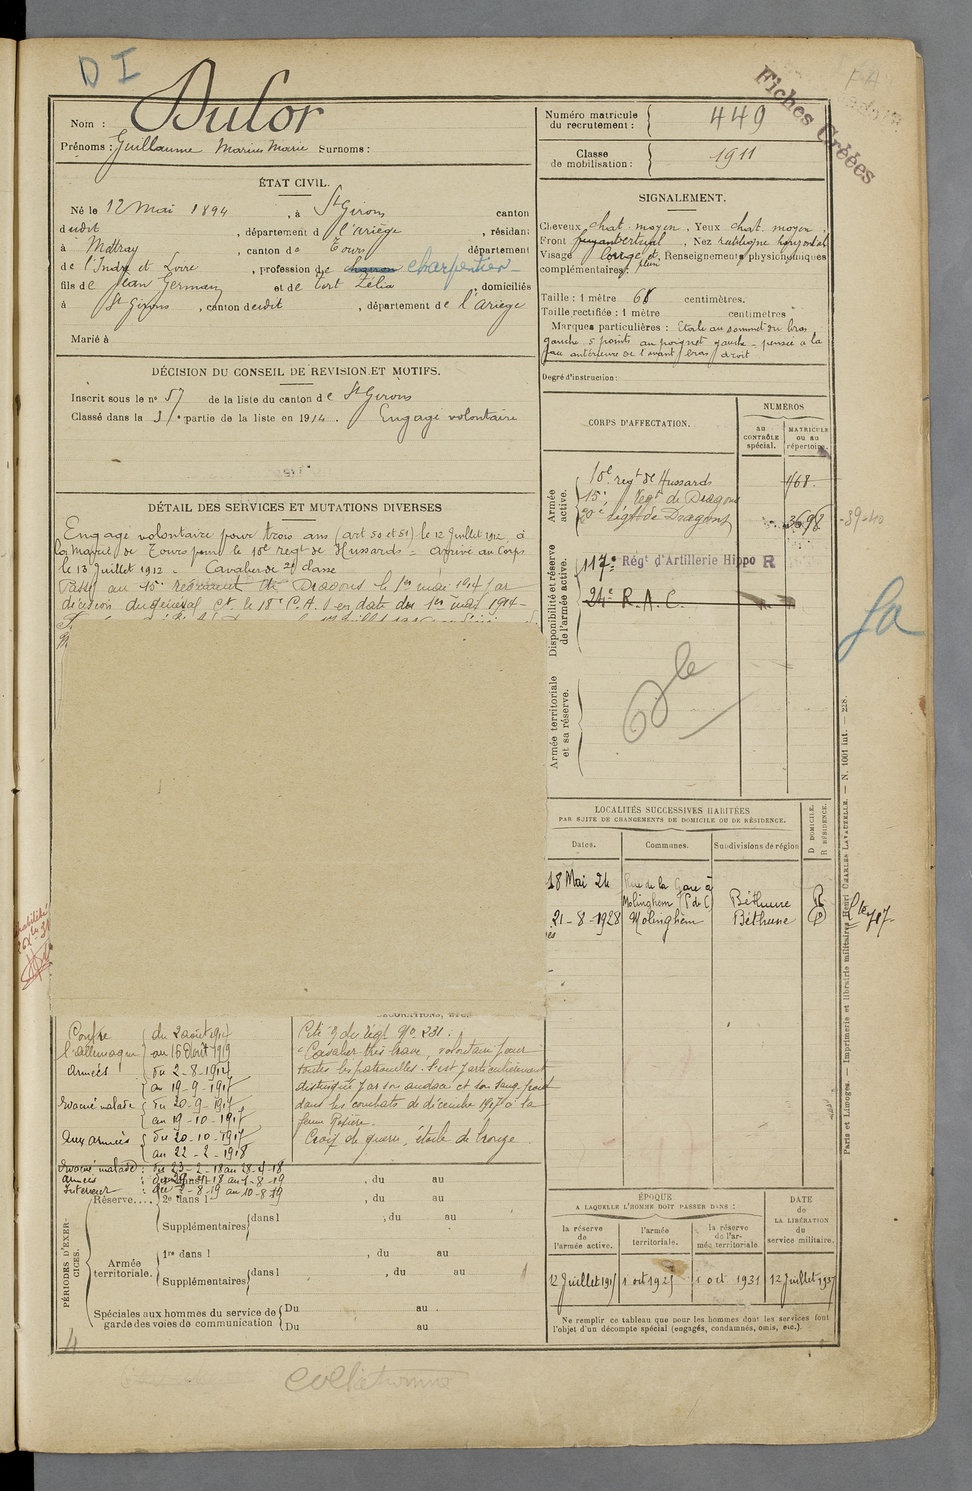 D I
Fiches Créées
Nom : Dulor
Prénoms : Guillaume Marius Marie Surnoms :
Numéro matricule du recrutement : 449
Classe de mobilisation : 1911
ÉTAT CIVIL.
Né le 12 Mai 1894, à St Girons canton
dudit, département de l'Ariège, résidant
à Mettray, canton de Tours département
de l'Indre et Loire, profession de charron charpentier
fils de Jean Germain et de Tort Zélia, domiciliés
à St Girons, canton dudit, département de l'Ariège
Marié à
DÉCISION DU CONSEIL DE REVISION ET MOTIFS.
Inscrit sous le no 57 de la liste du canton de St Girons
Classé dans la 3e partie de la liste en 1914. Engagé volontaire
DÉTAIL DES SERVICES ET MUTATIONS DIVERSES
Engagé volontaire pour trois ans (art 50 et 51) le 12 Juillet 1912, à
la Mairie de Tours pour le 10e regt de Hussards = arrivé au Corps
le 13 Juillet 1912 = Cavalier de 2e classe
Passé au 15e régiment de Dragons le 1er mai 1914 par
décision du général Ct le 18e C.A. en date du 1er mars 1914-
SIGNALEMENT.
Cheveux chat. moyen, Yeux chat. moyen,
Front fuyant vertical, Nez rectiligne horizontal
Visage long et plein, Renseignements physionomiques
complémentaires :
Taille : 1 mètre 68 centimètres.
Taille rectifiée : 1 mètre centimètres
Marques particulières : Etoile au sommet du bras
gauche 5 points au poignet gauche - pensée à la
face antérieure de l'avant bras droit
Degré d'instruction :
CORPS D'AFFECTATION.
NUMÉROS
au CONTRÔLE spécial.
MATRICULE ou au répertoire.
Armée active.
10e regt de Hussards 468.
15e regt de Dragons
20e régt de Dragons 3698
39-40
Disponibilité et réserve de l'armée active.
117e Régt d'Artillerie Hippo R
24e R.A.C.
Armée territoriale et sa réserve.
LOCALITÉS SUCCESSIVES HABITÉES
PAR SUITE DE CHANGEMENTS DE DOMICILE OU DE RÉSIDENCE.
Dates. Communes. Subdivisions de région D DOMICILE. R RÉSIDENCE.
18 Mai 24 Rue de la Gare à
Molinghem (P de C) Béthune R
21-8-1928 Molinghem Béthune
Paris et Limoges. — Imprimerie et librairie militaires Henri CHARLES-LAVAUZELLE. — N. 1001 int. — 228.
DÉCORATIONS, ETC.
Contre l'allemagne
du 2 août 1914
au 16 Avril 1919
Armées
du 2-8-1914
au 19-9-1917
Evacué malade
du 20-9-1917
au 19-10-1917
Aux armées
du 20-10-1917
au 22-2-1918
Evacué malade : du 23-2-18 au 28-4-18
Armées
Intérieur
Cité à
"Cavalier très brave, volontaire pour
toutes les patrouilles. S'est particulièrement
distingué par son audace et son sang froid
dans les combats de décembre 1917 à la
ferme
Croix de guerre, étoile de bronze
PÉRIODES D'EXERCICES.
Réserve....
2e dans l , du au
, du au
Supplémentaires dans l , du au
Armée territoriale.
1re dans l , du au
Supplémentaires dans l , du au
Spéciales aux hommes du service de garde des voies de communication
Du au
Du au
ÉPOQUE
A LAQUELLE L'HOMME DOIT PASSER DANS :
la réserve de l'armée active.
l'armée territoriale.
la réserve de l'armée territoriale
DATE DE LA LIBÉRATION du service militaire.
12 Juillet 1915 1 oct 1925 1 oct 1931 12 Juillet 1937
Ne remplir ce tableau que pour les hommes dont les services font
l'objet d'un décompte spécial (engagés, condamnés, omis, etc.).
4